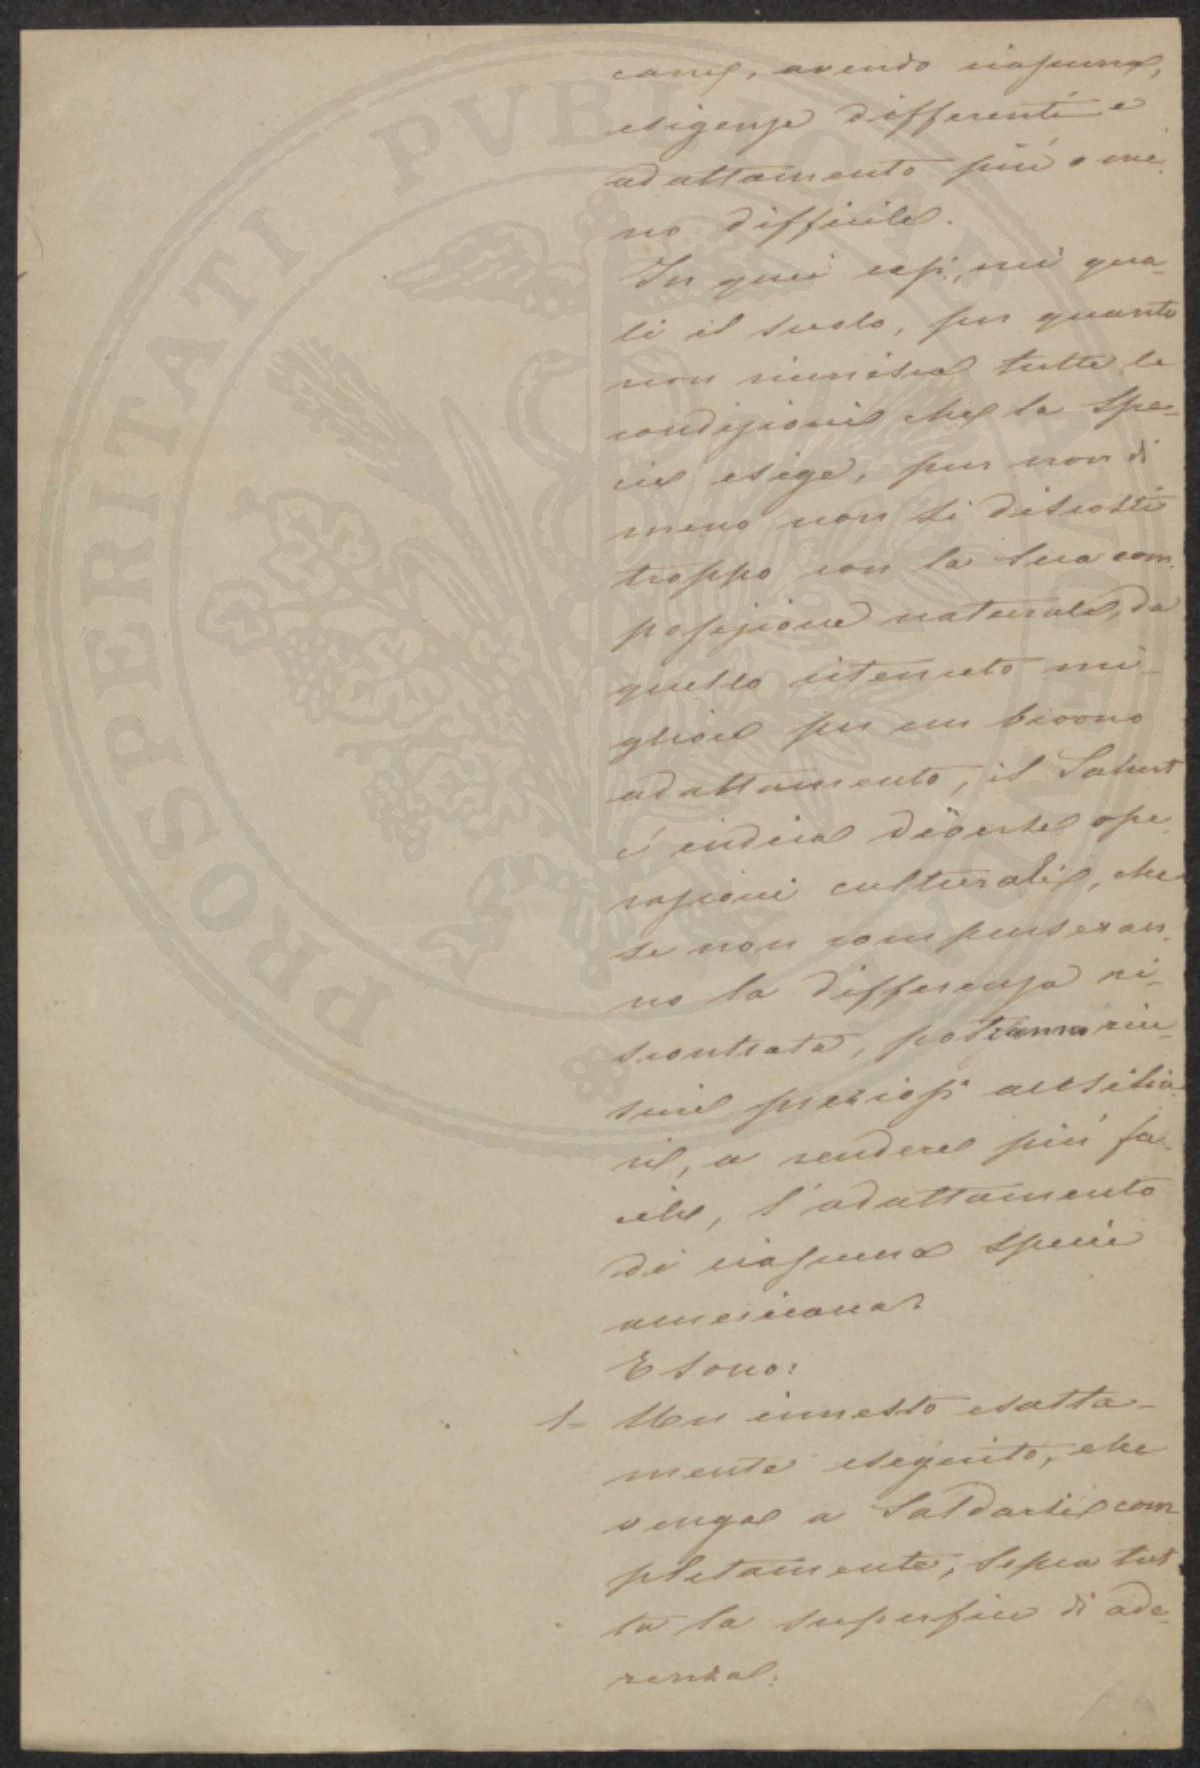 cane, avendo ciascuna,
esigenze differenti e
adattamento più o me-
no difficile.
In quei casi, nei qua-
li il suolo, per quanto
non riunisca tutte le
condizioni che la spe-
cie esige, pur non di
meno non si discosti
troppo con la sua com-
posizione naturale, da
quello ritenuto mi-
gliore per un buono
adattamento, il Sahut
è indica diverse ope-
razioni culturali, che
se non compenseran-
no la differenza ri-
scontrata, potranno riu-
scire preziosi ausilia-
ri, a rendere più fa-
cile, l'adattamento
di ciascuna specie
americana.
E sono:
1- Un innesto esatta-
mente eseguito, che
venga a saldarsi com
pletamente, sopra tut
ta la superficie di ade-
renza.
PROSPERITATI PVBLICAE